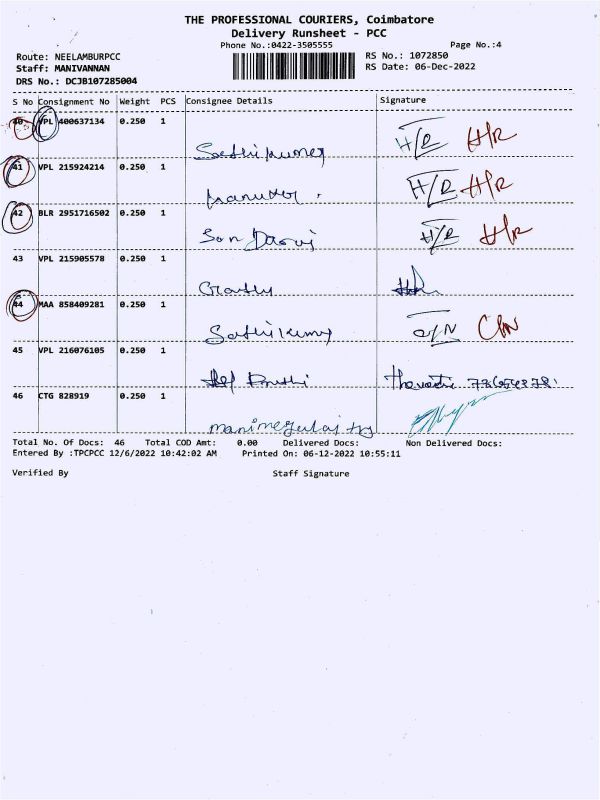 THE PROFESSIONAL COURIERS, Coimbatore
Delivery Runsheet - PCC
Phone No.:0422-3505555 Page No.:4
Route: NEELAMBURPCC RS No.: 1072850
Staff: MANIVANNAN RS Date: 06-Dec-2022
DRS No.: DCJB107285004
S No Consignment No Weight PCS Consignee Details Signature
40 VPL 400637134 0.250 1
H/R H/R
41 VPL 215924214 0.250 1
H/R H/R
42 BLR 2951716502 0.250 1
H/R H/R
43 VPL 215905578 0.250 1
44 MAA 858409281 0.250 1
Sathikumar
45 VPL 216076105 0.250 1
46 CTG 828919 0.250 1
Total No. Of Docs: 46 Total COD Amt: 0.00 Delivered Docs: Non Delivered Docs:
Entered By :TPCPCC 12/6/2022 10:42:02 AM Printed On: 06-12-2022 10:55:11
Verified By Staff Signature